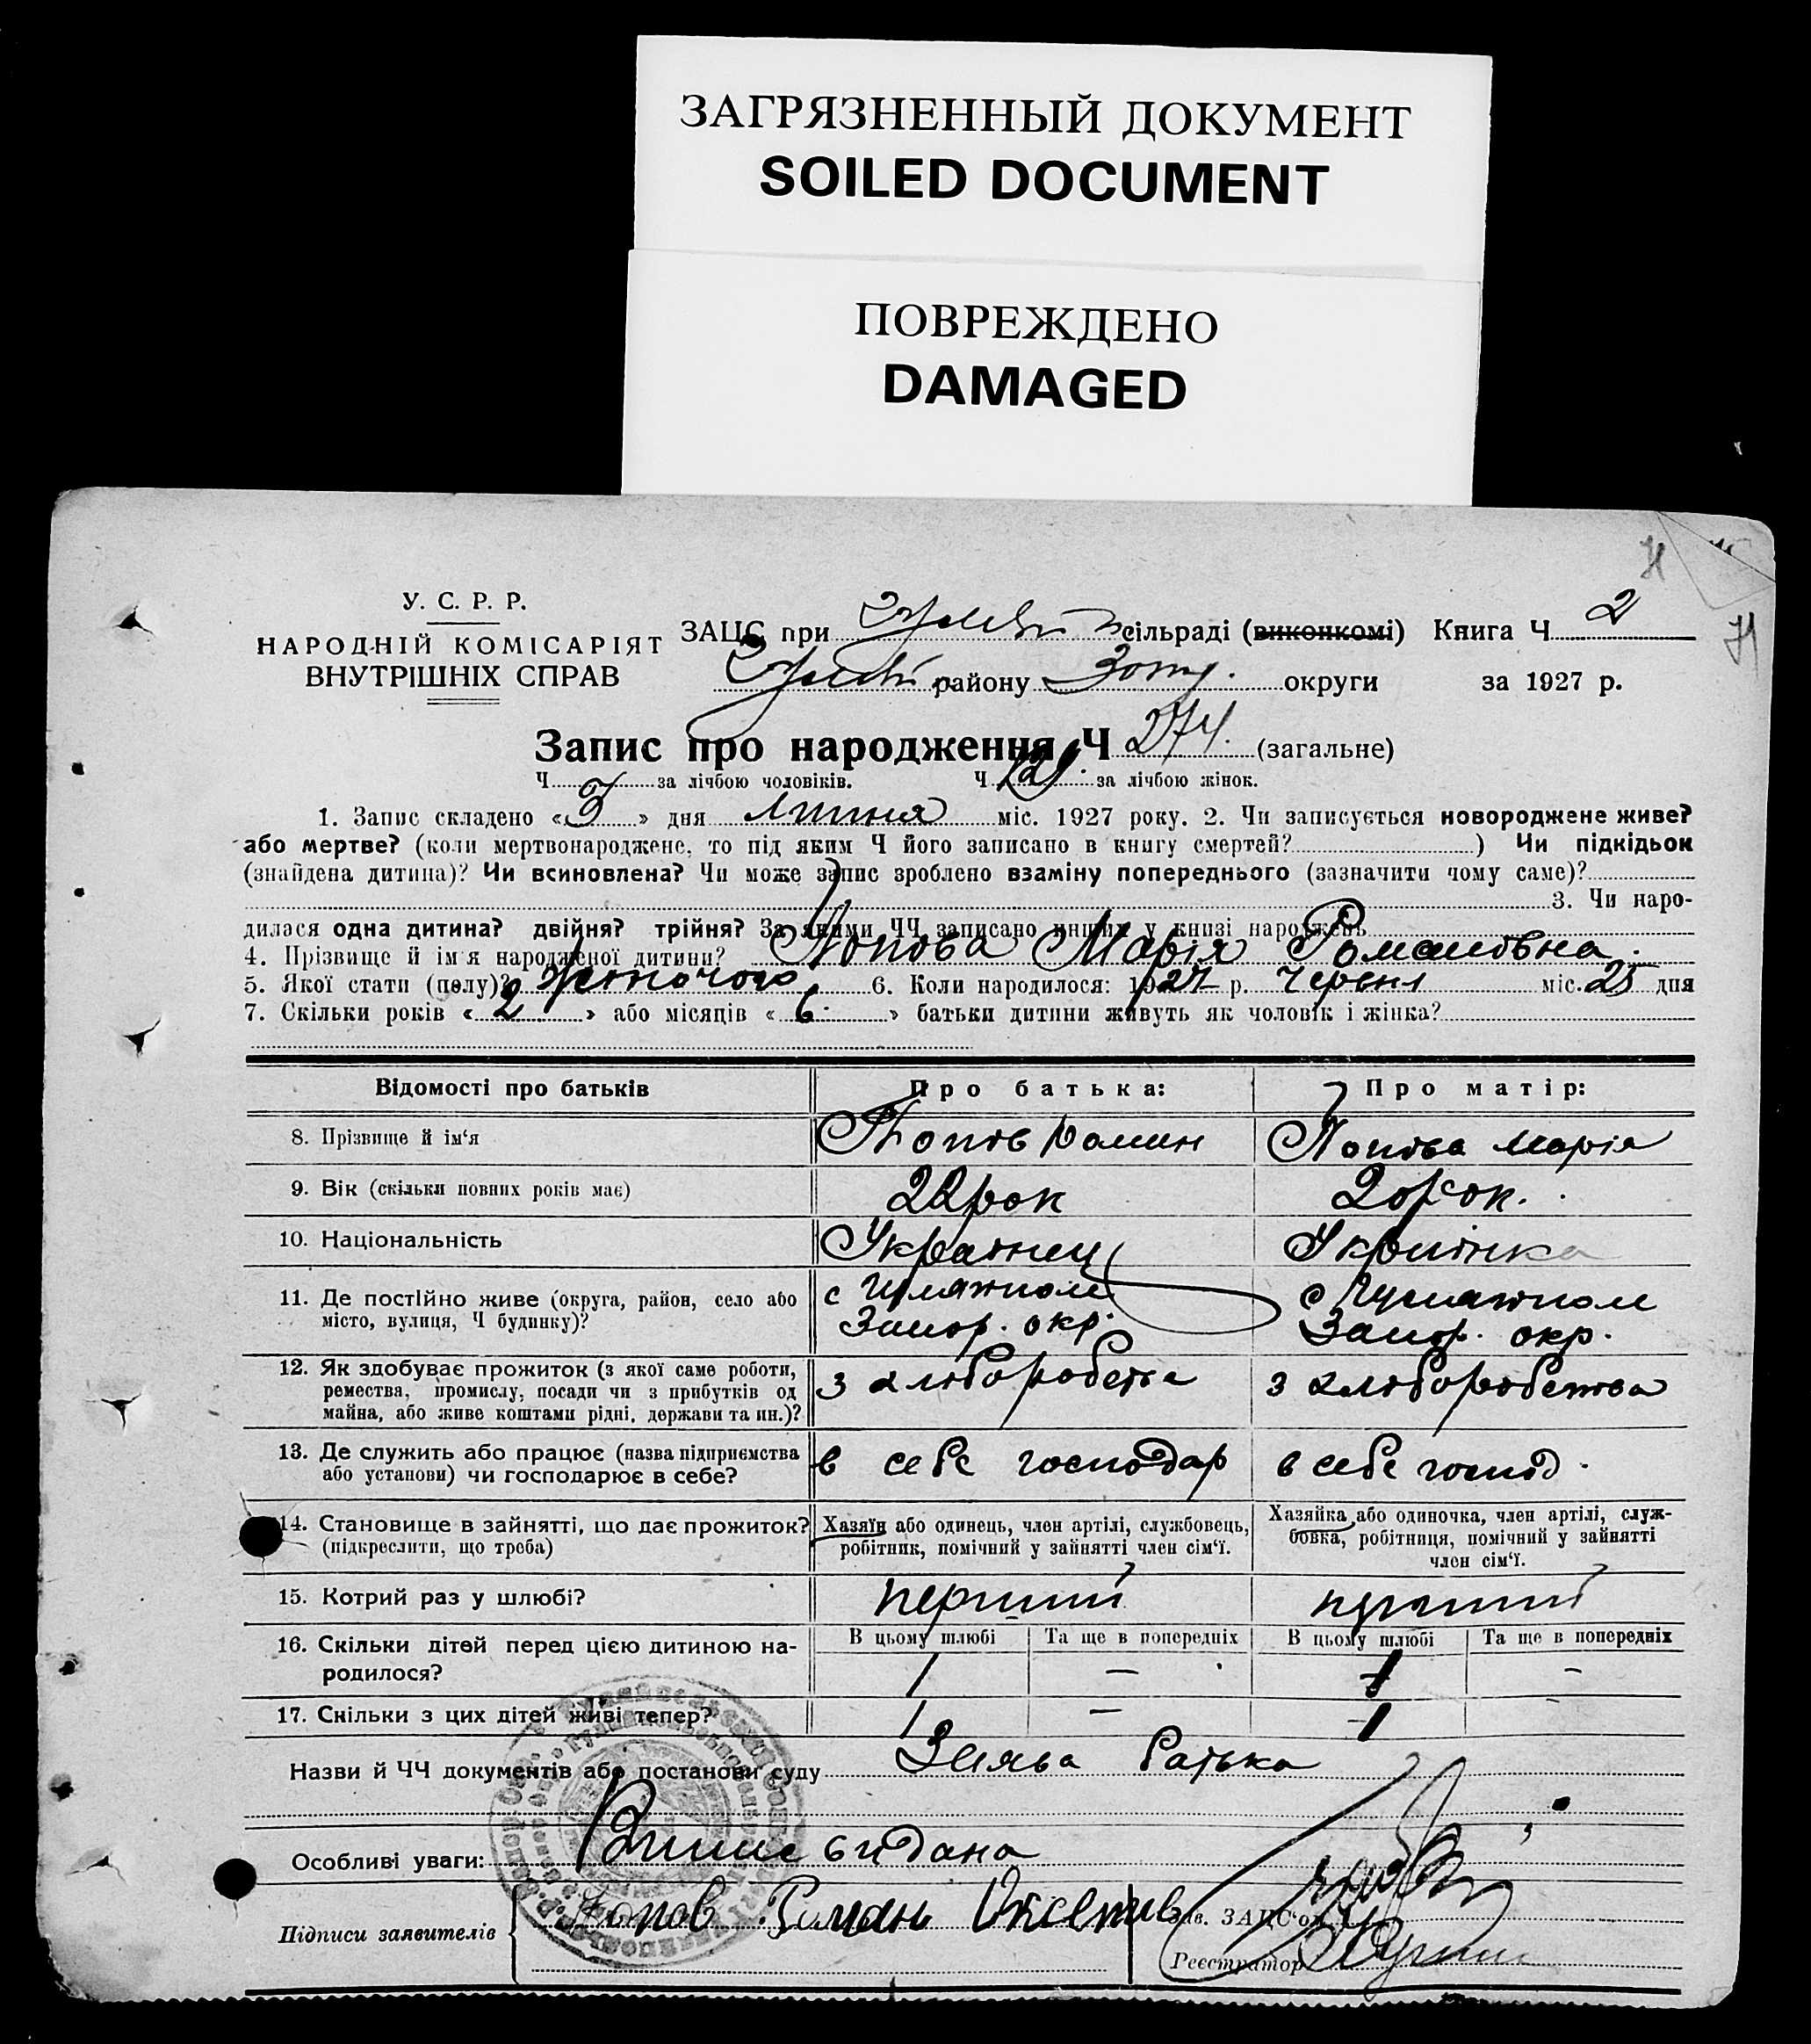 ЗАГРЯЗНЕННЫЙ ДОКУМЕНТ
SOILED DOCUMENT
ПОВРЕЖДЕНО
DAMAGED
У. С. Р. Р.
НАРОДНІЙ КОМІСАРІЯТ
ВНУТРІШНІХ СПРАВ
ЗАЦС при сільраді (виконкомі) Книга Ч. 2
району округи за 1927 р.
Запис про народження Ч 274. (загальне)
Ч. за лічбою чоловіків. Ч. за лічбою жінок.
1. Запис складено «3» дня липня міс. 1927 року. 2. Чи записується новороджене живе?
або мертве? (коли мертвонароджене, то під яким Ч його записано в книгу смертей? ) Чи підкідьок
(знайдена дитина)? Чи всиновлена? Чи може запис зроблено взаміну попереднього (зазначити чому саме)?
3. Чи наро-
дилася одна дитина? двійня? трійня? За якими ЧЧ записано инших у книзі народжень
4. Прізвище й ім'я народженої дитини? Попова Марія Романовна.
5. Якої стати (полу)? жіночого 6. Коли народилося: 1927 р. червня міс. 25 дня
7. Скільки років «2» або місяців «6» батьки дитини живуть як чоловік і жінка?
Відомості про батьків Про батька: Про матір:
8. Прізвище й ім'я Попов Роман Попова Марія
9. Вік (скільки повних років має) 22 рок 20 рок.
10. Національність Українец Українка
11. Де постійно живе (округа, район, село або
місто, вулиця, Ч будинку)? Запор. окр. Запор. окр.
12. Як здобуває прожиток (з якої саме роботи,
ремества, промислу, посади чи з прибутків од
майна, або живе коштами рідні, держави та ин.)? з хлiборобства з хлiборобства
13. Де служить або працює (назва підприємства
або установи) чи господарює в себе? в себе господар в себе господ.
14. Становище в зайнятті, що дає прожиток?
(підкреслити, що треба)
Хазяїн або одинець, член артілі, службовець,
робітник, помічний у зайнятті член сім'ї.
Хазяйка або одиночка, член артілі, служ-
бовка, робітниця, помічний у зайнятті
член сім'ї.
15. Котрий раз у шлюбі? перший перший
16. Скільки дітей перед цією дитиною на-
родилося?
В цьому шлюбі Та ще в попередніх В цьому шлюбі Та ще в попередніх
1 — 1 —
17. Скільки з цих дітей живі тепер? 1 — 1
Назви й ЧЧ документів або постанови суду Заява батька
Особливі уваги: видана
Підписи заявителів Попов Роман
Зав. ЗАЦС'ом
Реєстратор